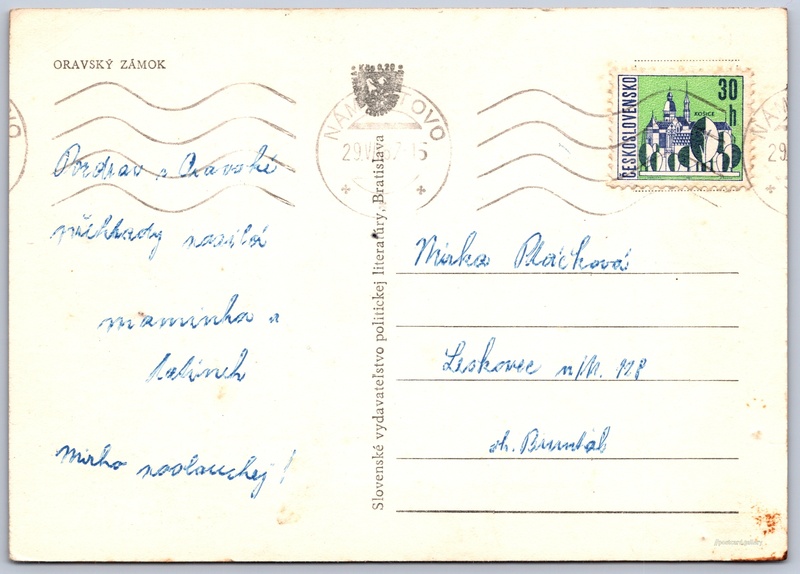 ORAVSKÝ ZÁMOK
Kčs 0,20
NÁM TOVO
30
h
ČESKOSLOVENSKO
KOŠICE
Pozdrav z Oravské
přehrady zasílá
maminka a
tatínek
Mirko poslouchej!
Slovenské vydavateľstvo politickej literatúry, Bratislava
Mirka Pláčková
Leskovec n/M. 178
ok. Bruntál